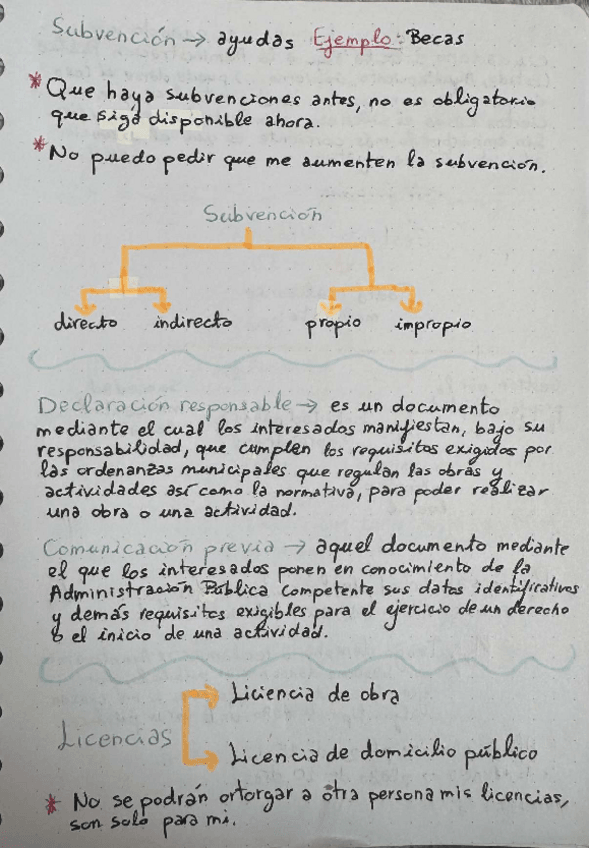 Subvención → ayudas Ejemplo: Becas
* Que haya subvenciones antes, no es obligatorio
que siga disponible ahora.
* No puedo pedir que me aumenten la subvención.
Subvención
directo indirecto propio impropio
Declaración responsable → es un documento
mediante el cual los interesados manifiestan, bajo su
responsabilidad, que cumplen los requisitos exigidos por
las ordenanzas municipales que regulan las obras y
actividades así como la normativa, para poder realizar
una obra o una actividad.
Comunicación previa → aquel documento mediante
el que los interesados ponen en conocimiento de la
Administración Pública competente sus datos identificativos
y demás requisitos exigibles para el ejercicio de un derecho
o el inicio de una actividad.
Liciencia de obra
Licencias
Licencia de domicilio público
* No se podrán ortorgar a otra persona mis licencias,
son solo para mi.